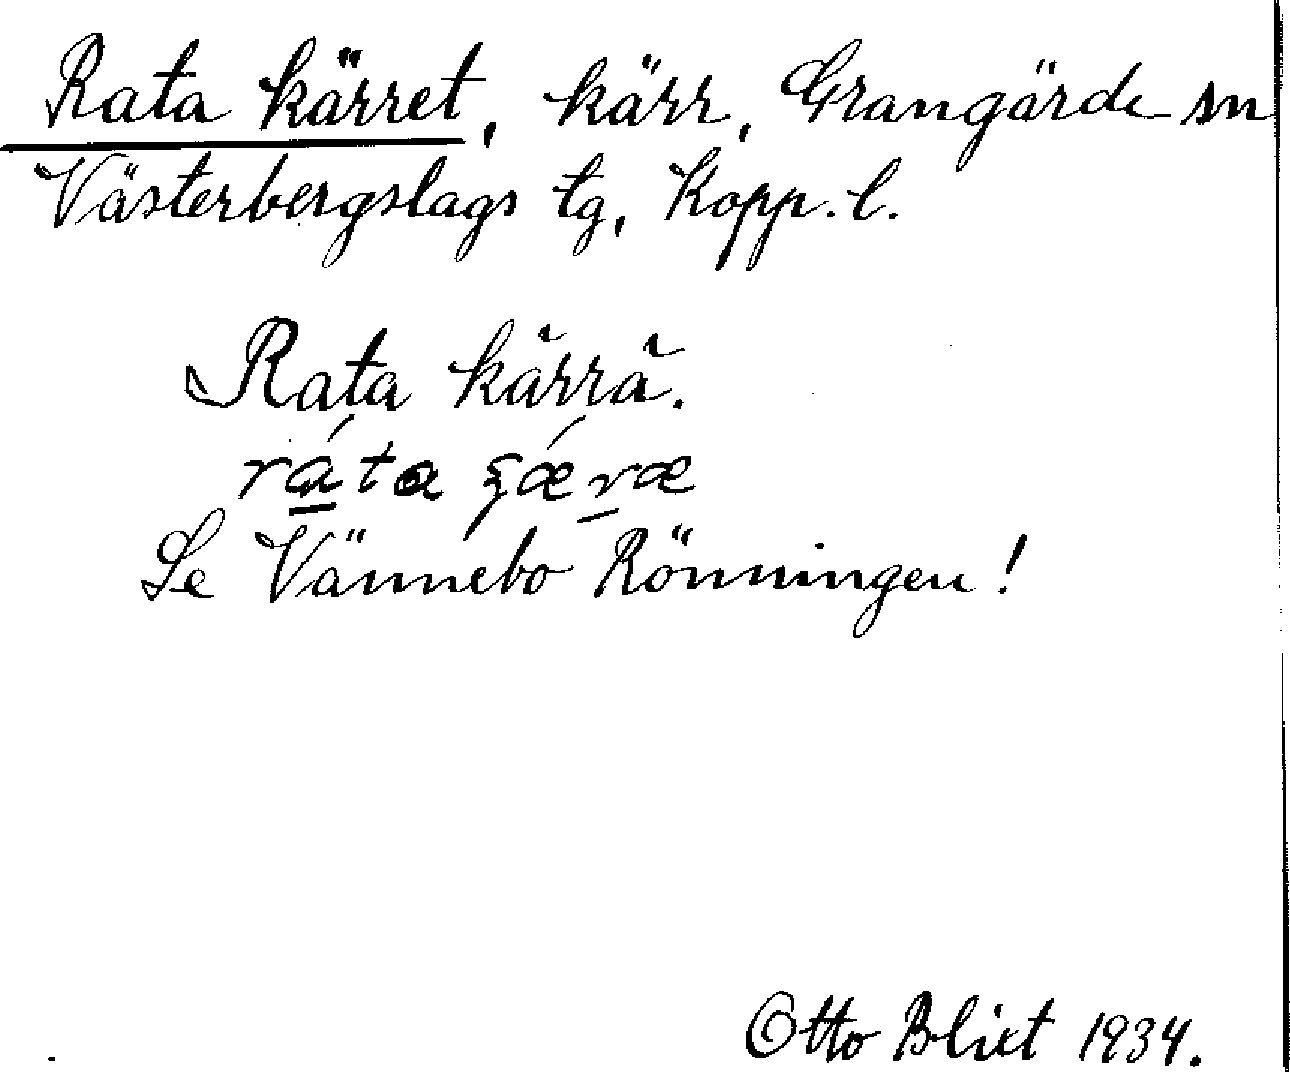 Rata kärret, kärr, Grangärde sn
Västerbergslags tg, Kopp. l.
Rata kärrä.
ráta ȿǽræ
Se Vännebo Rönningen!
Otto Blixt 1934.